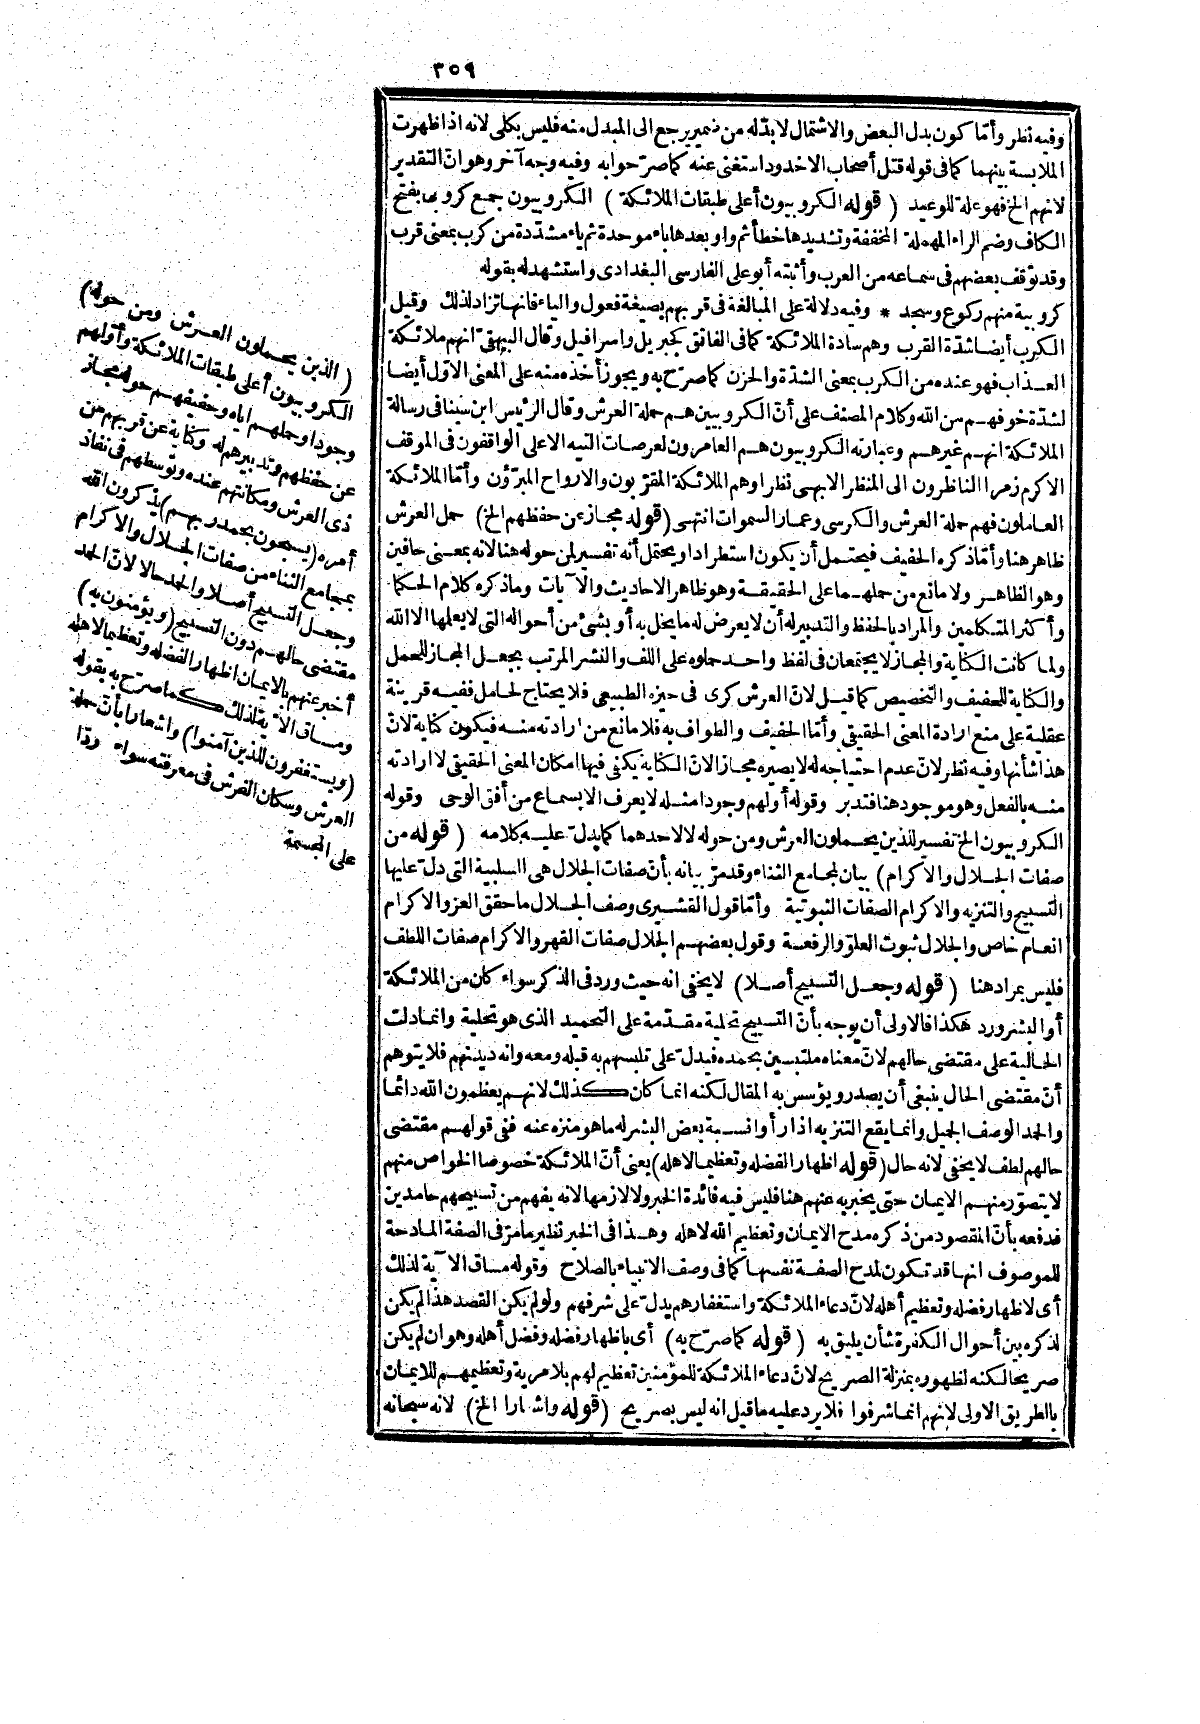 ٣٥٩
وفيه نظر وأمّا كون بدل البعض والاشتمال لا بدّله من ضمير يرجع الى المبدل منه فليس بكلى لانه اذا ظهرت
الملابسة بينهما كما فى قوله قتل أصحاب الاخدود استغنى عنه كما صرّحوا به وفيه وجه آخر وهو انّ التقدير
لانهم الخ فهو علة للوعيد ( قوله الكروبيون أعلى طبقات الملائكة ) الكروبيون جمع كروبى بفتح
الكاف وضم الراء المهملة المخففة وتشديدها خطأ ثم واو بعدها باء موحدة ثم ياء مشدّدة من كرب بمعنى قرب
وقد توقف بعضهم فى سماعه من العرب وأثبته أبو على الفارسى البغدادى واستشهد له بقوله
كروبية منهم ركوع وسجد * وفيه دلالة على المبالغة فى قربهم بصيغة فعول والياء فانها تزاد لذلك وقيل
الكرب أيضا شدّة القرب وهم سادة الملائكة كما فى الفائق كجبريل واسرافيل وقال البيهقىّ انهم ملائكة
العذاب فهو عنده من الكرب بمعنى الشدّة والحزن كما صرّح به ويجوز أخذه منه على المعنى الاوّل أيضا
لشدّة خوفهم من الله وكلام المصنف على أنّ الكروبيين هم حملة العرش وقال الرئيس ابن سينا فى رسالة
الملائكة انهم غيرهم وعبارته الكروبيون هم العامرون لعرصات التيه الاعلى الواقفون فى الموقف
الاكرم زمرا الناظرون الى المنظر الابهى نظرا وهم الملائكة المقرّبون والارواح المبرّؤن وأمّا الملائكة
العاملون فهم حملة العرش والكرسى وعمار السموات انتهى ( قوله مجاز عن حفظهم الخ ) حمل العرش
ظاهر هنا وأمّا ذكره الحفيف فيحتمل أن يكون استطرادا ويحتمل أنه تفسير لمن حوله هنا لانه بمعنى حافين
وهو الظاهر ولا مانع من حملهما على الحقيقة وهو ظاهر الاحاديث والآيات وما ذكره كلام الحكما
وأكثر المتكلمين والمراد بالحفظ والتدبير له أن لا يعرض له ما يخل به أو بشئ من أحواله التى لا يعلمها الا الله
ولما كانت الكناية والمجاز لا يجتمعان فى لفظ واحد حملوه على اللف والنشر المرتب بجعل المجاز للحمل
والكناية للحفيف والتخصيص كما قيل لانّ العرش كرى فى حيزه الطبيعى فلا يحتاج لحامل ففيه قرينة
عقلية على منع ارادة المعنى الحقيقى وأمّا الحفيف والطواف به فلا مانع من ارادته منه فيكون كناية لانّ
هذا شأنها وفيه نظر لانّ عدم احتياجه له لا يصيره مجازا لانّ الكناية يكفى فيها امكان المعنى الحقيقى لا ارادته
منه بالفعل وهو موجود هنا فتدبر وقوله أولهم وجودا مثله لا يعرف الا بسماع من أفق الوحى وقوله
الكروبيون الخ تفسير للذين يحملون العرش ومن حوله لا لاحدهما كما يدلّ عليه كلامه ( قوله من
صفات الجلال والاكرام ) بيان لمجامع الثناء وقد مرّ بيانه بأنّ صفات الجلال هى السلبية التى دلّ عليها
التسبيح والتنزيه والاكرام الصفات الثبوتية وأمّا قول القشيرى وصف الجلال ما حقق العز والاكرام
انعام خاص والجلال ثبوت العلوّ والرفعة وقول بعضهم الجلال صفات القهر والاكرام صفات اللطف
فليس بمراد هنا ( قوله وجعل التسبيح أصلا ) لا يخفى انه حيث ورد فى الذكر سواء كان من الملائكة
أو البشر ورد هكذا فالاولى أن يوجه بأنّ التسبيح تخلية مقدّمة على التحميد الذى هو تحلية وانما دلت
الحالية على مقتضى حالهم لانّ معناه ملتبسين بحمده فيدلّ على تلبسهم به قبله ومعه وانه ديدنهم فلا يتوهم
أنّ مقتضى الحال ينبغى أن يصدر ويؤسس به المقال لكنه انما كان كذلك لانهم يعظمون الله دائما
والحمد الوصف الجميل وانما يقع التنزيه اذا رأوا نسبة بعض البشر له ما هو منزه عنه ففى قولهم مقتضى
حالهم لطف لا يخفى لانه حال ( قوله اظهارا لفضله وتعظيما لاهله ) يعنى أنّ الملائكة خصوصا الخواص منهم
لا يتصوّر منهم الايمان حتى يخبر به عنهم هنا فليس فيه فائدة الخبر ولا لازمها لانه يفهم من تسبيحهم حامدين
فدفعه بأنّ المقصود من ذكره مدح الايمان وتعظيم الله لاهله وهذا فى الخبر نظير ما مرّ فى الصفة المادحة
للموصوف انها قد تكون لمدح الصفة نفسها كما فى وصف الانبياء بالصلاح وقوله مساق الآية لذلك
أى لاظهار فضله وتعظيم أهله لانّ دعاء الملائكة واستغفارهم يدلّ على شرفهم ولو لم يكن القصد هذا لم يكن
لذكره بين أحوال الكفرة شأن يليق به ( قوله كما صرّح به ) أى باظهار فضله وفضل أهله وهو ان لم يكن
صريحا لكنه لظهوره بمنزلة الصريح لانّ دعاء الملائكة للمؤمنين تعظيم لهم بلا مرية وتعظيمهم للايمان
بالطريق الاولى لانهم انما شرفوا فلا يرد عليه ما قيل انه ليس بصريح ( قوله واشعارا الخ ) لانه سبحانه
( الذين يحملون العرش ومن حوله )
الكروبيون أعلى طبقات الملائكة وأوّلهم
وجودا وحملهم اياه وحفيفهم حوله مجاز
عن حفظهم وتدبيرهم له وكناية عن قربهم من
ذى العرش ومكانتهم عنده وتوسطهم فى نفاذ
أمره ( يسبحون بحمد ربهم ) يذكرون الله
بمجامع الثناء من صفات الجلال والاكرام
وجعل التسبيح أصلا والحمد حالا لانّ الحمد
مقتضى حالهم دون التسبيح ( ويؤمنون به )
أخبر عنهم بالايمان اظهارا لفضله وتعظيما لاهله
ومساق الآية لذلك كما صرّح به بقوله
( ويستغفرون للذين آمنوا ) واشعارا بأنّ حملة
العرش وسكان الفرش فى معرفته سواء ردّا
على المجسمة